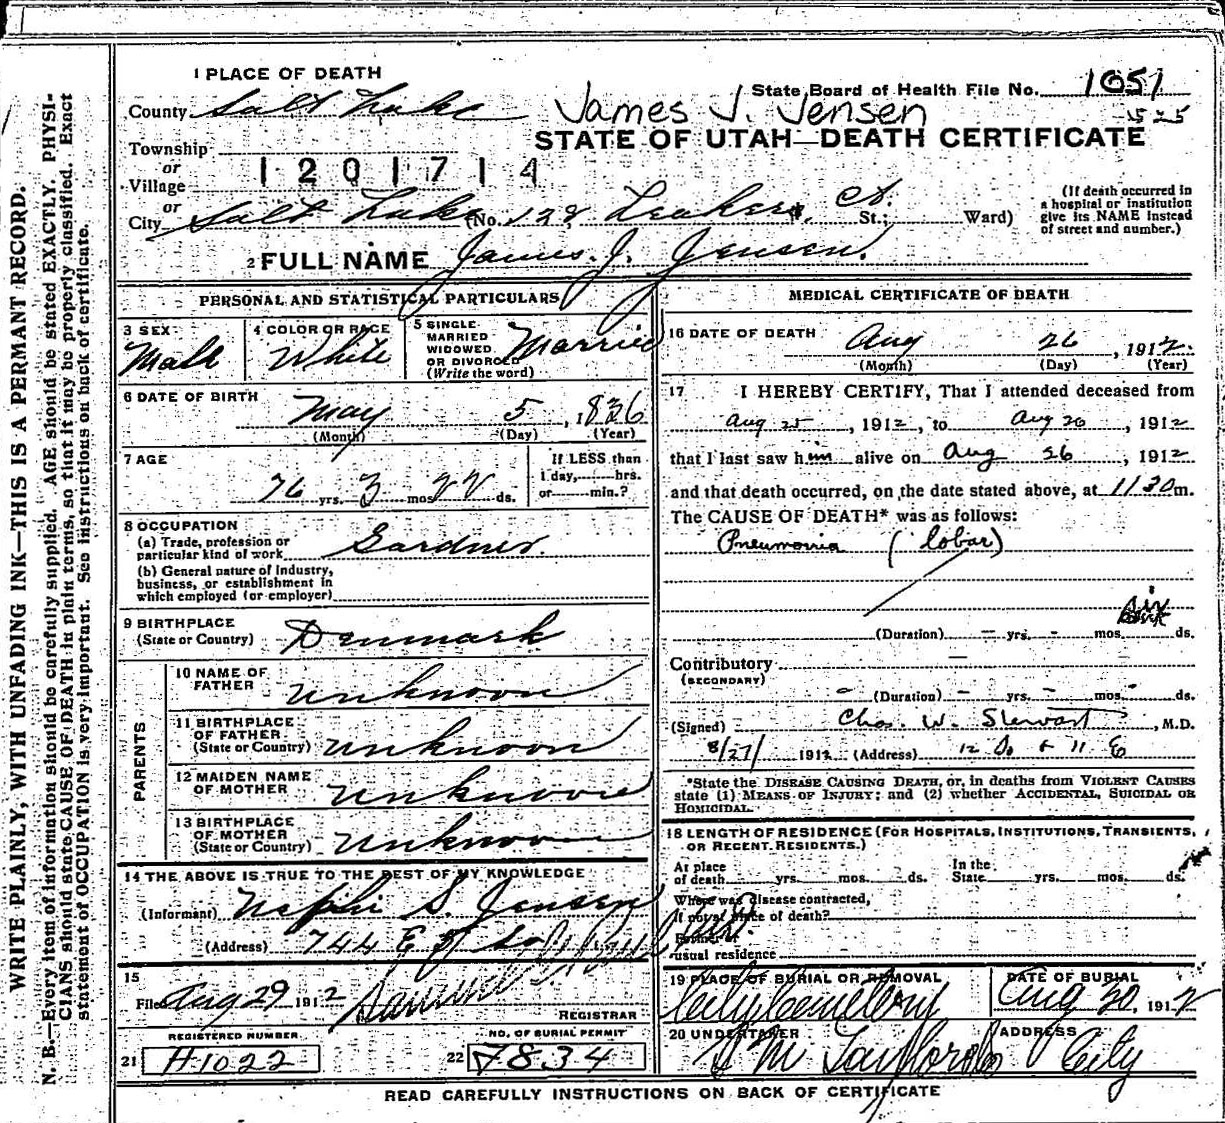 1 PLACE OF DEATH
State Board of Health File No. 1051
County Salt Lake James J. Jensen 525
STATE OF UTAH—DEATH CERTIFICATE
Township
or
Village
1201714
or
City Salt Lake (No. 128, St.; Ward)
(If death occurred in
a hospital or institution
give its NAME instead
of street and number.)
2 FULL NAME James. J. Jensen.
PERSONAL AND STATISTICAL PARTICULARS
3 SEX Male
4 COLOR OR RACE White
5 SINGLE
MARRIED
WIDOWED
OR DIVORCED
(Write the word)
Married
6 DATE OF BIRTH May 5, 1836
(Month) (Day) (Year)
7 AGE
76 yrs. 3 mos 22 ds.
If LESS than
1 day, hrs.
or min.?
8 OCCUPATION
(a) Trade, profession or
particular kind of work Gardner.
(b) General nature of Industry,
business, or establishment in
which employed (or employer)
9 BIRTHPLACE
(State or Country) Denmark
PARENTS
10 NAME OF
FATHER unknown
11 BIRTHPLACE
OF FATHER
(State or Country) unknown
12 MAIDEN NAME
OF MOTHER unknown
13 BIRTHPLACE
OF MOTHER
(State or Country) unknown
14 THE ABOVE IS TRUE TO THE BEST OF MY KNOWLEDGE
(Informant) Nephi S. Jensen
(Address) 744 E
15
Filed Aug 29 1912
REGISTRAR
REGISTERED NUMBER
21 H1022
NO. OF BURIAL PERMIT
22 7834
MEDICAL CERTIFICATE OF DEATH
16 DATE OF DEATH Aug 26, 1912.
(Month) (Day) (Year)
17 I HEREBY CERTIFY, That I attended deceased from
Aug 25, 1912, to Aug 26, 1912
that I last saw him alive on Aug 26, 1912
and that death occurred, on the date stated above, at 1130 m.
The CAUSE OF DEATH* was as follows:
Pneumonia (lobar)
six
(Duration) – yrs. – mos. ds.
Contributory —
(SECONDARY)
– (Duration) – yrs. – mos. – ds.
(Signed) Chas. W. Stewart, M.D.
8/27/ 1912 (Address)
*State the DISEASE CAUSING DEATH, or, in deaths from VIOLENT CAUSES
state (1) MEANS OF INJURY; and (2) whether ACCIDENTAL, SUICIDAL OR
HOMICIDAL.
18 LENGTH OF RESIDENCE (FOR HOSPITALS, INSTITUTIONS, TRANSIENTS,
OR RECENT RESIDENTS.)
At place
of death yrs. mos. ds.
In the
State yrs. mos. ds.
Where was disease contracted,
if not at place of death?
Former or
usual residence
19 PLACE OF BURIAL OR REMOVAL
City Cemetery
DATE OF BURIAL
Aug 30, 1912
20 UNDERTAKER
ADDRESS
City
READ CAREFULLY INSTRUCTIONS ON BACK OF CERTIFICATE
WRITE PLAINLY, WITH UNFADING INK—THIS IS A PERMANT RECORD.
N. B.—Every item of information should be carefully supplied. AGE should be stated EXACTLY. PHYSI-
CIANS should state CAUSE OF DEATH in plain terms, so that it may be properly classified. Exact
statement of OCCUPATION is very important. See instructions on back of certificate.